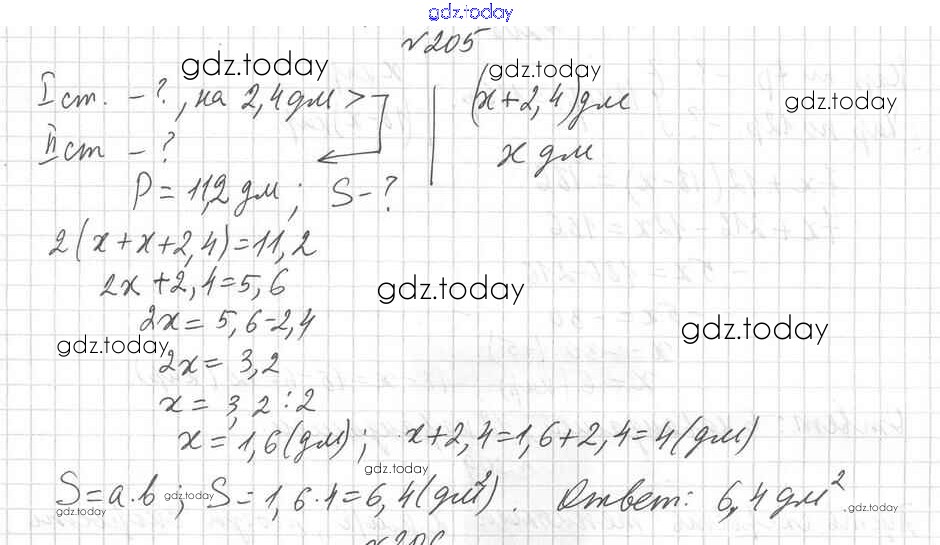 gdz.today
№205
gdz.today
I ст. – ?, на 2,4 дм > (x+2,4) дм
gdz.today
gdz.today
II ст – ? x дм
P = 11,2 дм; S – ?
2(x+x+2,4)=11,2
2x+2,4=5,6
gdz.today
2x = 5,6-2,4
gdz.today
gdz.today
2x = 3,2
x = 3,2 : 2
x = 1,6 (дм); x+2,4=1,6+2,4=4 (дм)
gdz.today
S=a·b; S=1,6·4=6,4 (дм²). Ответ: 6,4 дм².
gdz.today
gdz.today